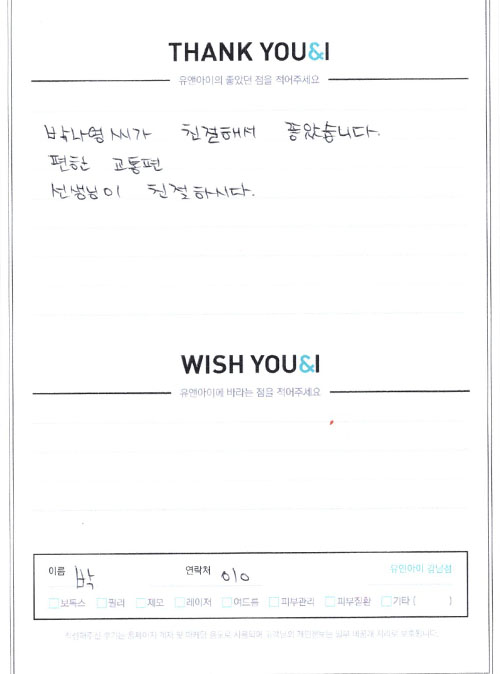 THANK YOU&I
유앤아이의 좋았던 점을 적어주세요
박나영씨가 친절해서 좋았습니다.
편한 교통편
선생님이 친절하시다.
WISH YOU&I
유앤아이에 바라는 점을 적어주세요
이름 박 연락처 010 유앤아이 강남점
보톡스 필러 제모 레이저 여드름 피부관리 피부질환 기타 ( )